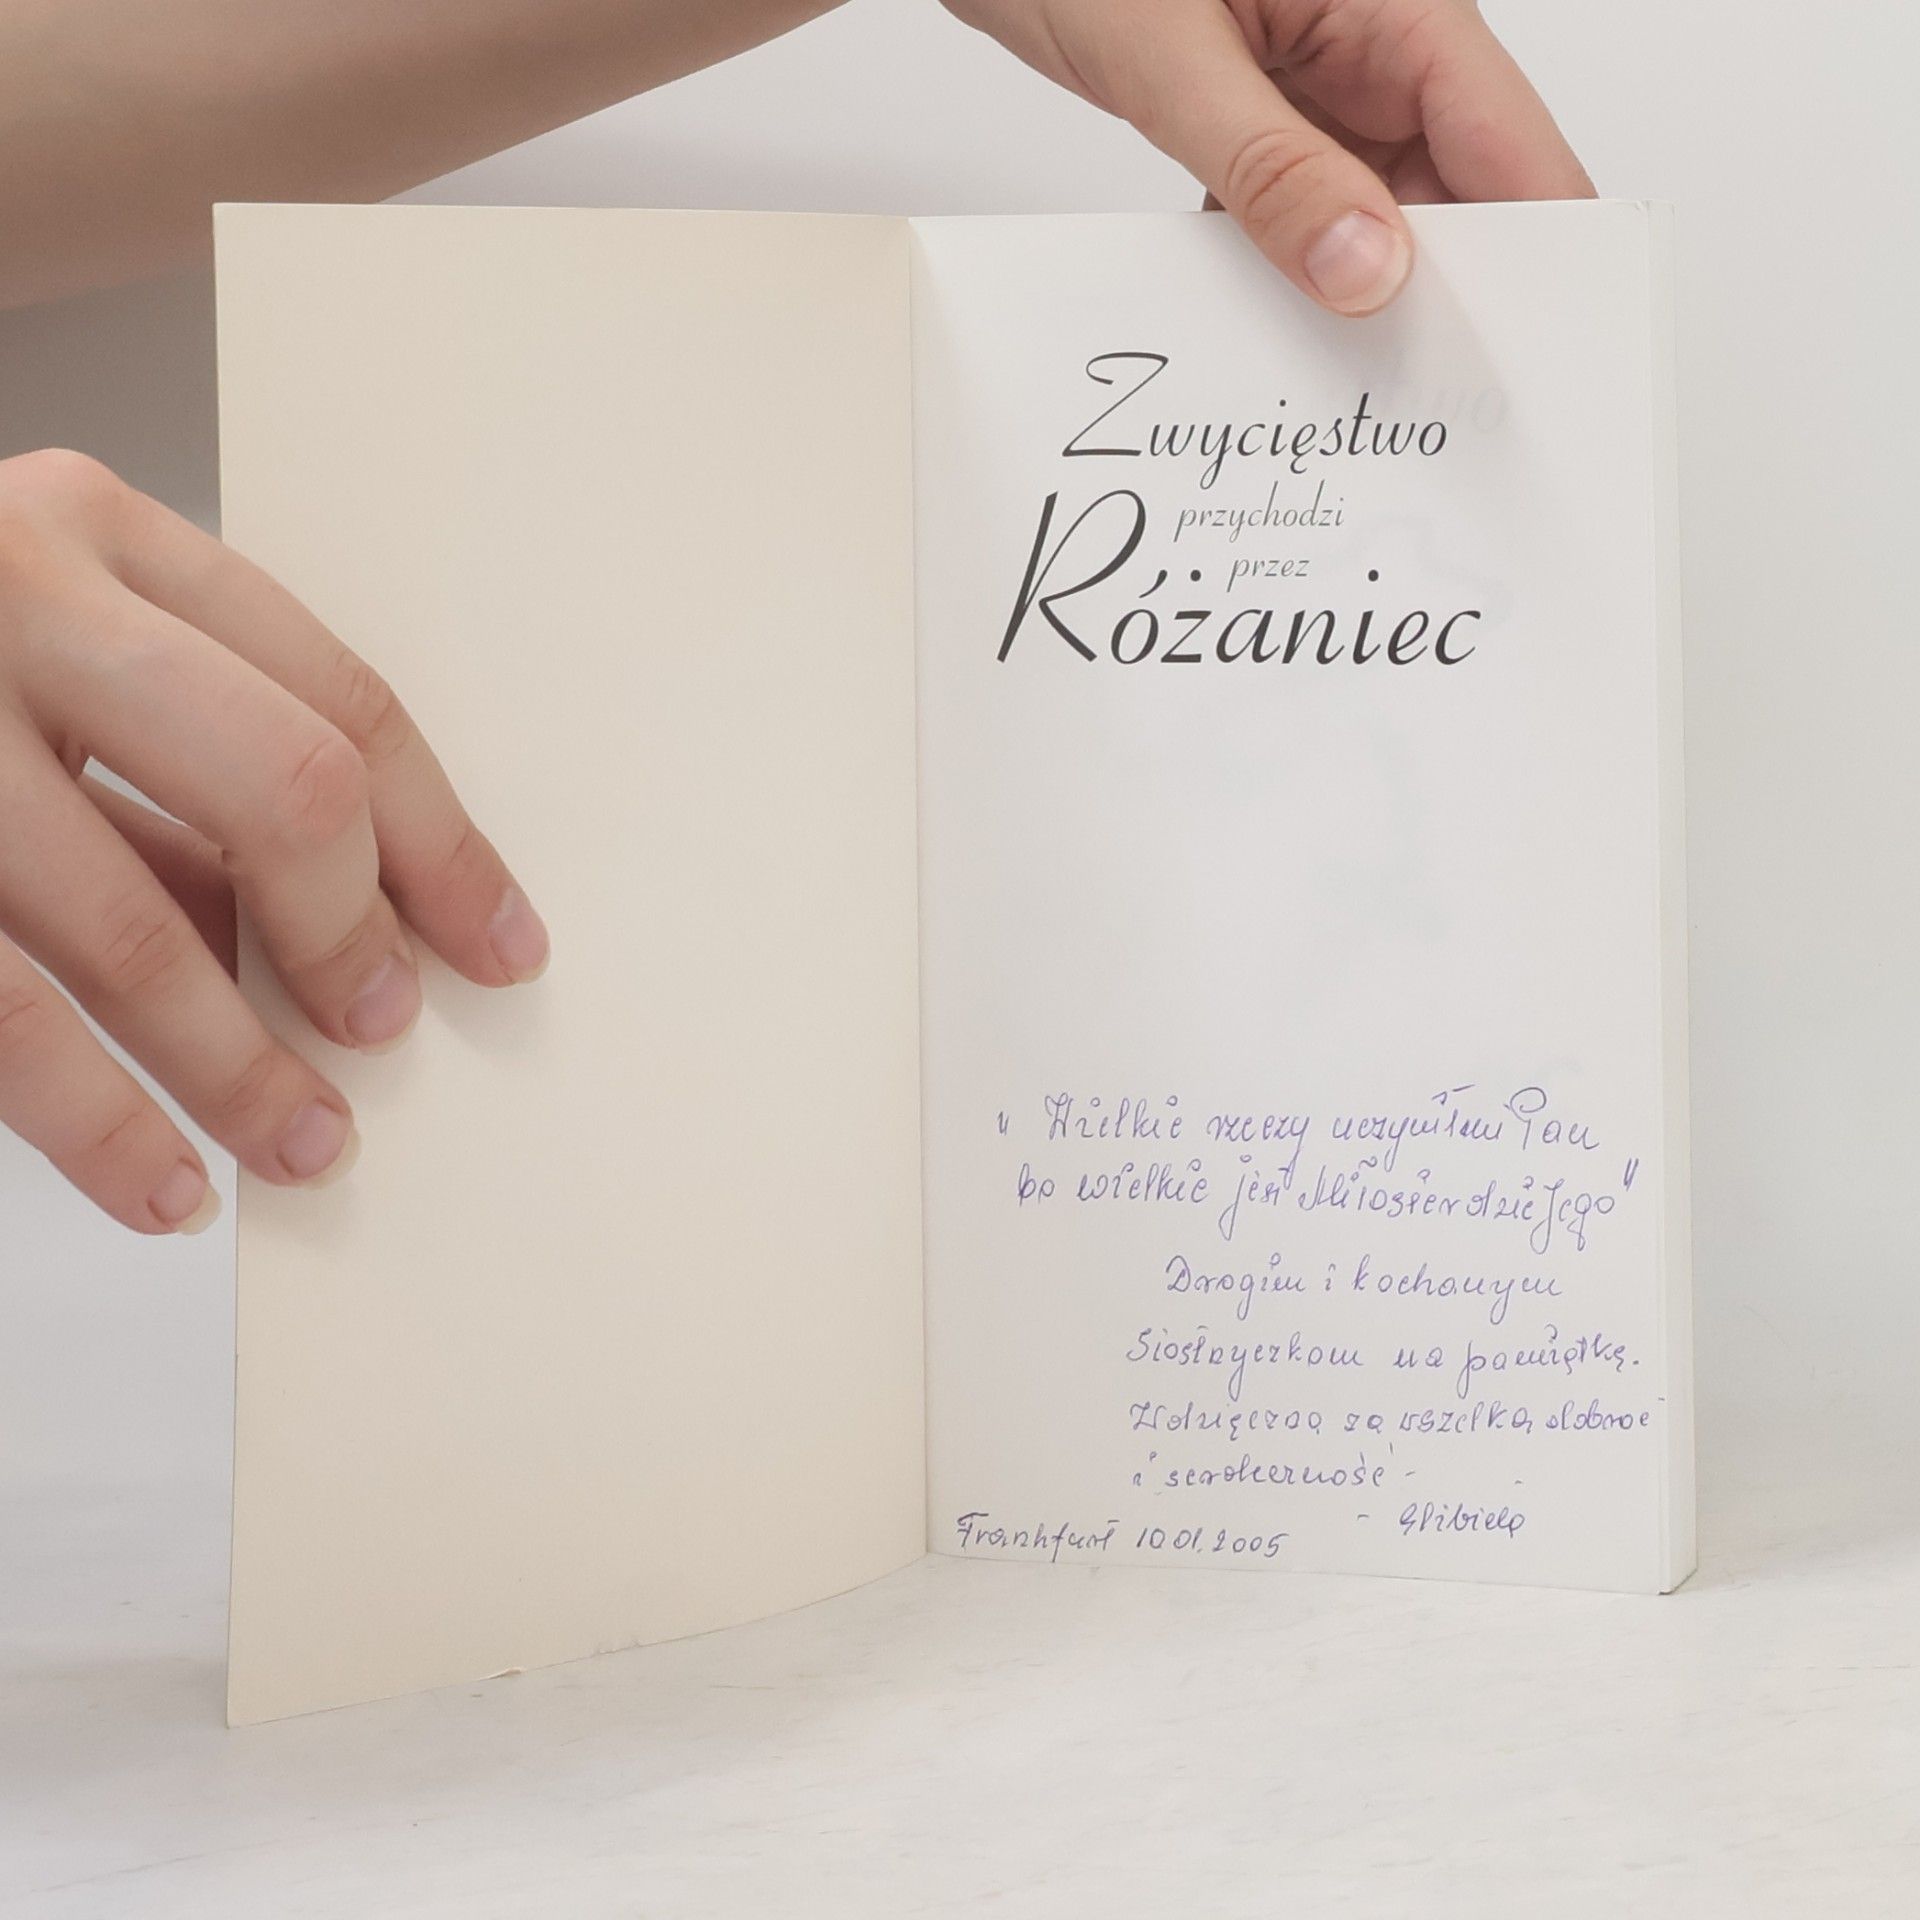 Zwycięstwo
przychodzi
przez
Różaniec
„Wielkie rzeczy uczynił mi Pan
bo wielkie jest Miłosierdzie Jego"
Drogim i kochanym
Siostrzyczkom na pamiątkę.
Wdzięczna za wszelką dobroć
i serdeczność -
Frankfurt 10.01.2005